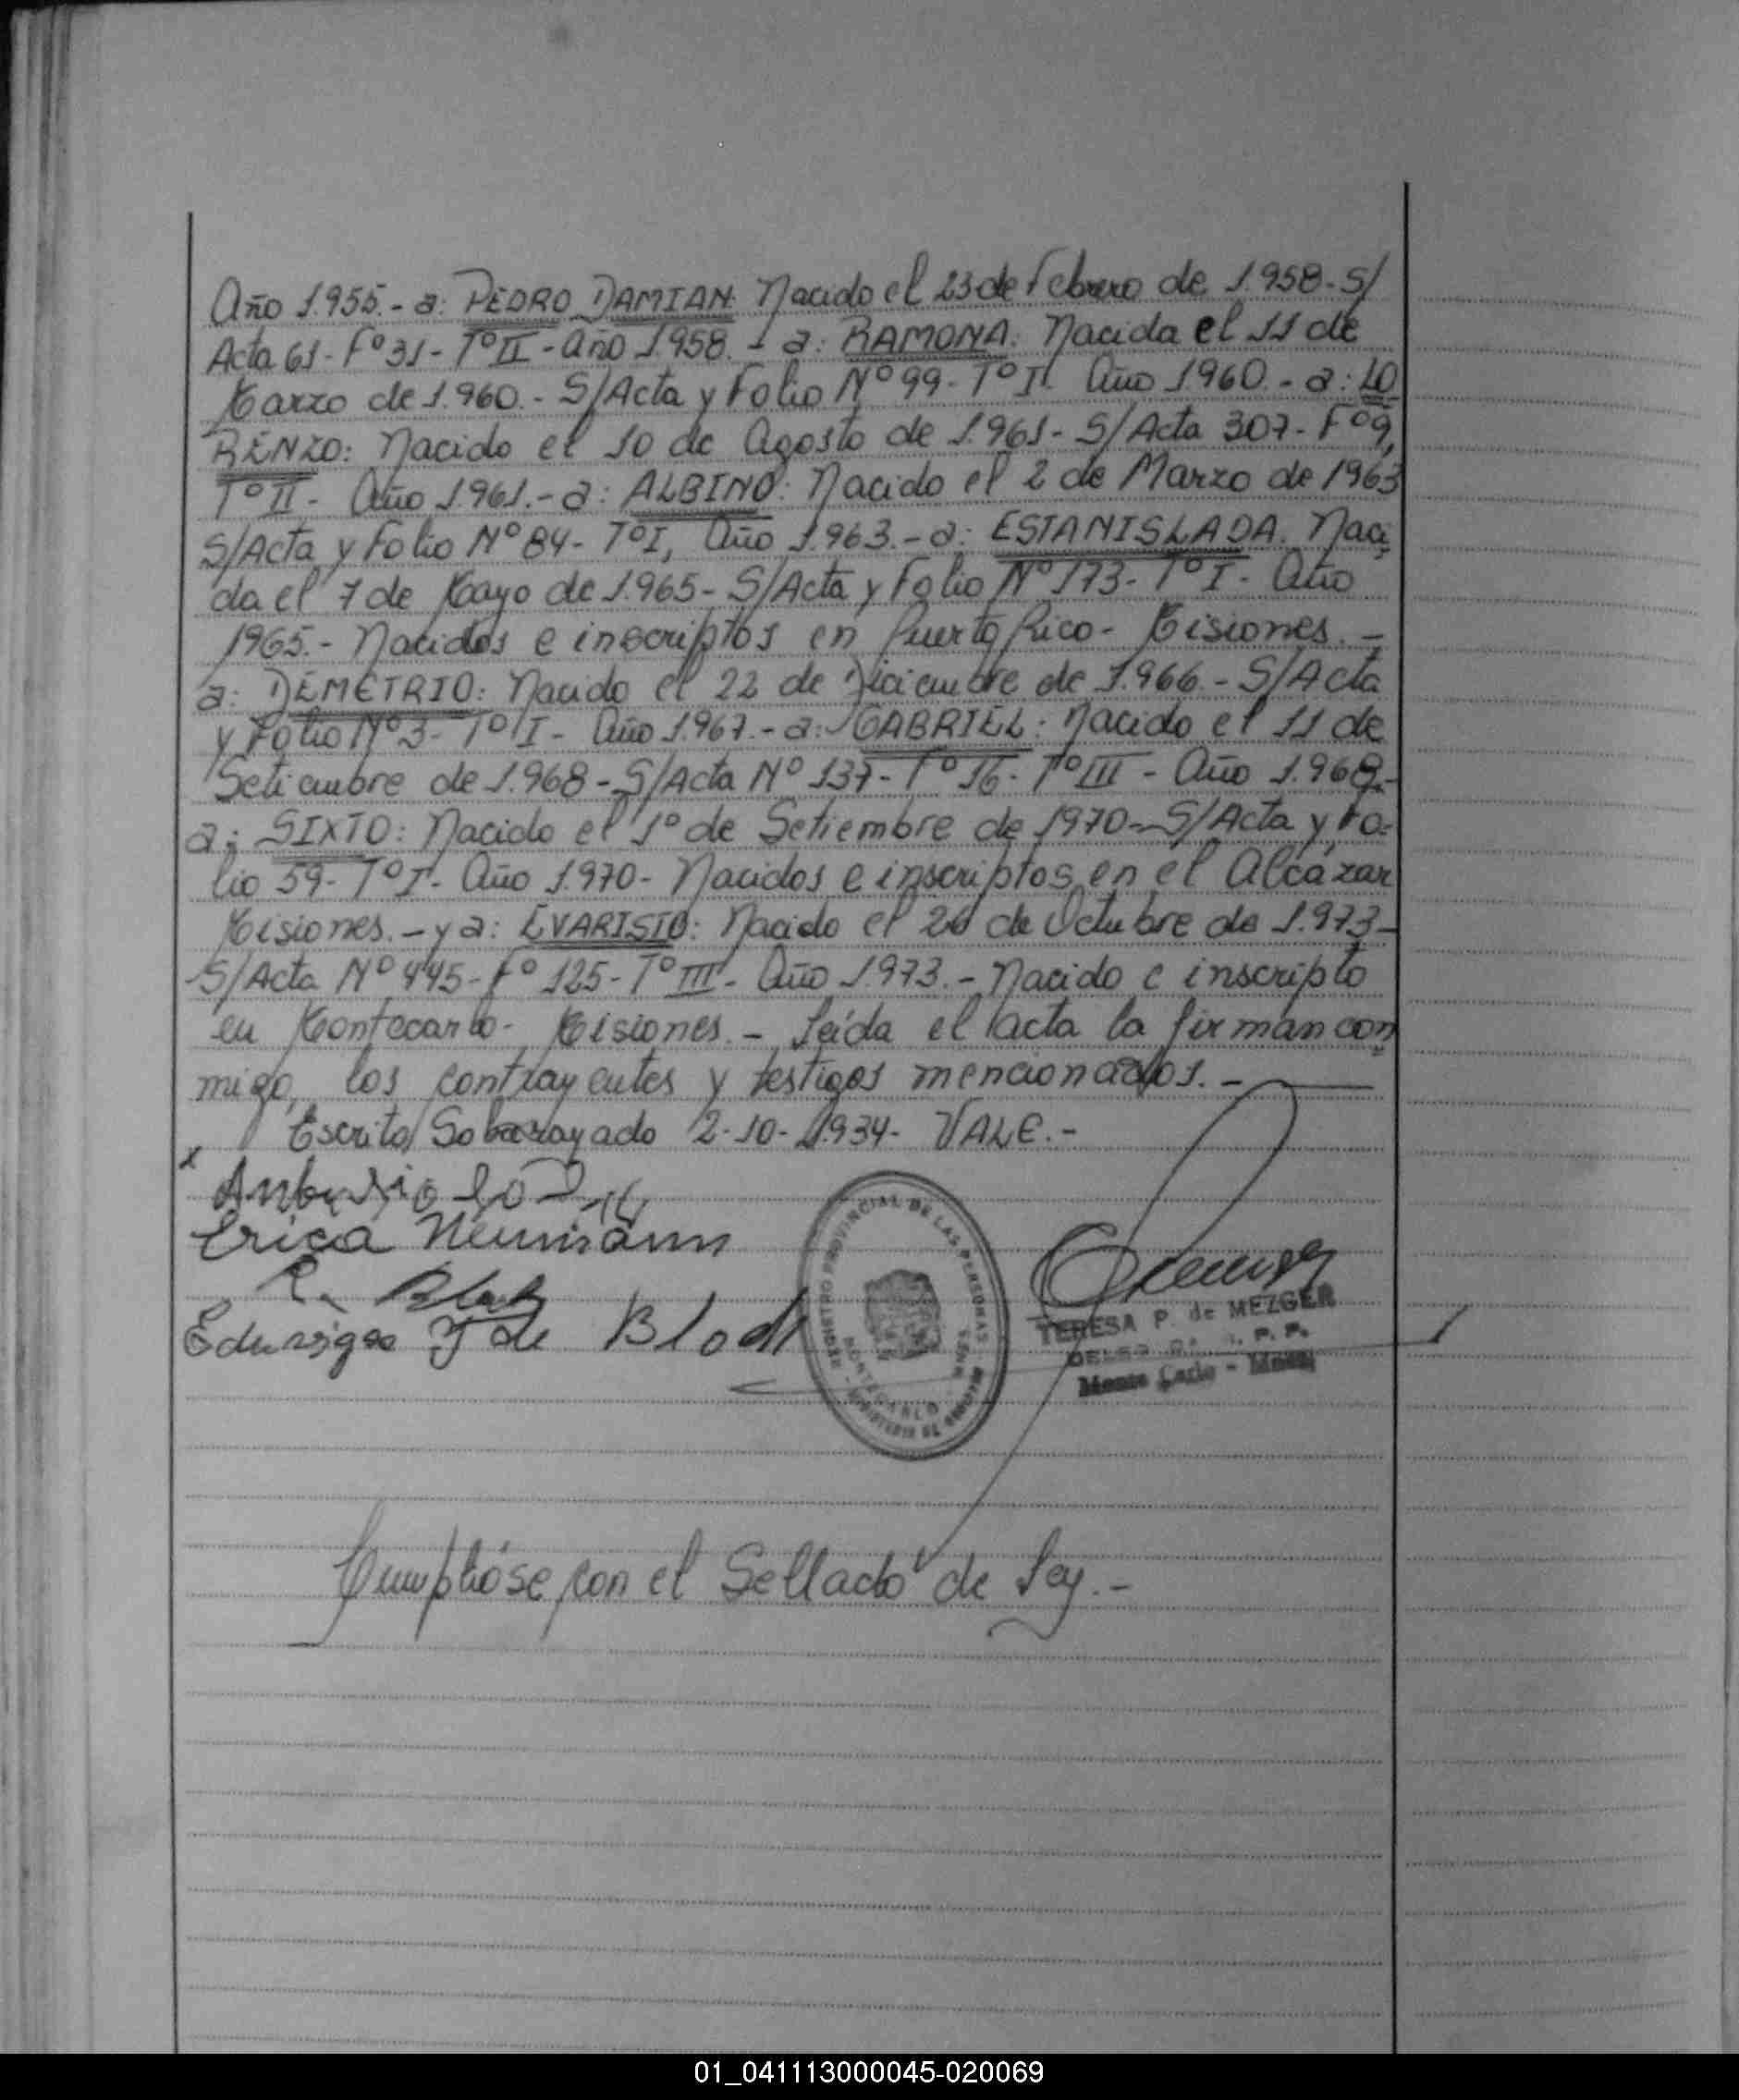 Año 1.955.- a: PEDRO DAMIAN: Nacido el 23 de Febrero de 1.958.- S/
Acta 61- Fº 31- Tº II - Año 1.958.- a: RAMONA: Nacida el 11 de
Marzo de 1.960.- S/Acta y Folio Nº 99- Tº I. Año 1960.- a: LO
RENZO: Nacido el 10 de Agosto de 1.961- S/Acta 307- Fº 9,
Tº II - Año 1.961.- a: ALBINO: Nacido el 2 de Marzo de 1963
S/Acta y Folio Nº 84- Tº I, Año 1.963.- a: ESTANISLADA. Naci
da el 7 de Mayo de 1.965- S/Acta y Folio Nº 173- Tº I - Año
1965.- Nacidos e inscriptos en Puerto Rico- Misiones.-
a: DEMETRIO: Nacido el 22 de Diciembre de 1.966.- S/Acta
y Folio Nº 3- Tº I - Año 1.967.- a: GABRIEL: Nacido el 11 de
Setiembre de 1.968- S/Acta Nº 137- Fº 16- Tº III - Año 1.968.-
a: SIXTO: Nacido el 1º de Setiembre de 1970- S/Acta y Fo=
lio 59- Tº I- Año 1.970- Nacidos e inscriptos en el Alcázar
Misiones.- y a: EVARISTO: Nacido el 26 de Octubre de 1.973-
S/Acta Nº 445- Fº 125- Tº III- Año 1.973.- Nacido e inscripto
en Montecarlo- Misiones.- Leída el acta la firman con
migo, los contrayentes y testigos mencionados.-
Escrito/Sobrerayado 2-10-1.934- VALE.-
x
Erica Neumann
Eduvigos J de Block
REGISTRO PROVINCIAL DE LAS PERSONAS
MONTECARLO
TERESA P. de MEZGER
Monte Carlo - Mnes
Cumplióse con el Sellado de Ley.-
01_041113000045-020069